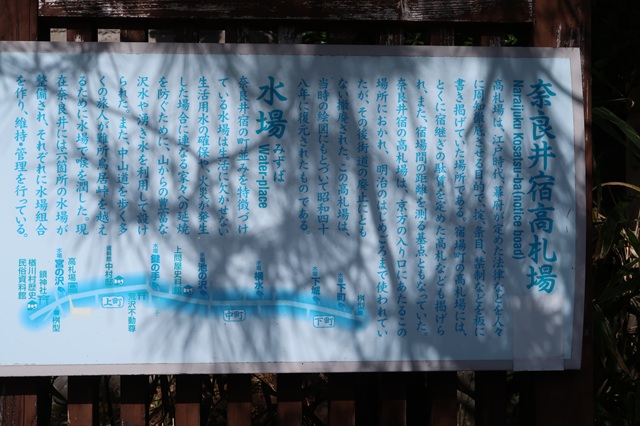 奈良井宿高札場
Naraijuku Kosatsu-ba(notice board)
高札場は、江戸時代、幕府が定めた法度などを人々
書き掲げていた場所である。宿場町の高札場には、
とくに宿継ぎの駄賃を定めた高札なども掲げら
れ、また、宿場間の距離を測る基点ともなっていた。
奈良井宿の高札場は、京方の入り口にあたるこの
場所におかれ、明治のはじめころまで使われてい
たが、その後街道の廃止ととも
ない撤廃された。この高札場は、
当時の絵図にもとづいて昭和四十
八年に復元されたものである。
水場 みずば
Water-place
奈良井宿の町並みを特徴づけ
ている水場は生活に欠かせない
生活用水の確保や、火災が発生
した場合に連なる家々への延焼
を防ぐために、山からの豊富な
沢水や湧き水を利用して設け
られた。また、中山道を歩く多
くの旅人が難所の鳥居峠を越え
るために水場で喉を潤した。現
在奈良井には六箇所の水場が
整備され、それぞれに水場組合
を作り、維持・管理を行っている。
下町
中町
上町
高札場
水場 宮の沢
鎮神社
楢川村歴史
民俗資料館
中村邸
上問屋史料